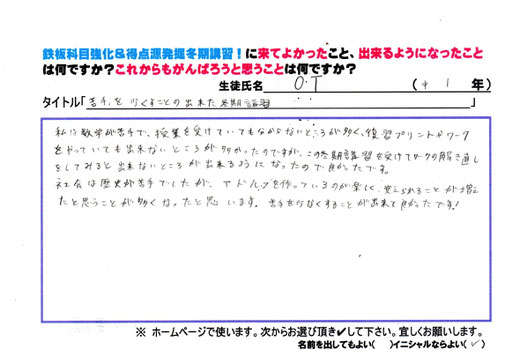 鉄板科目強化&得点源発掘冬期講習!に来てよかったこと、出来るようになったこと
は何ですか?これからもがんばろうと思うことは何ですか?
生徒氏名 O.T (中1年)
タイトル「苦手を少なくすることの出来た冬期講習」
私は数学が苦手で、授業を受けていてもわからないところが多く、復習プリントやワーク
をやっていても出来ないところが多かったのですが、この冬期講習を受けてワークの解き直し
をしてみると出来ないところが出来るようになったので良かったです。
社会は歴史が苦手でしたが、を作っているのが楽しく、覚えられることが増え
たと思うことが多くなったと思います。苦手を少なくすることが出来て良かったです!
※ ホームページで使います。次からお選び頂き✔して下さい。宜しくお願いします。
名前を出してもよい( )イニシャルならよい(✓)